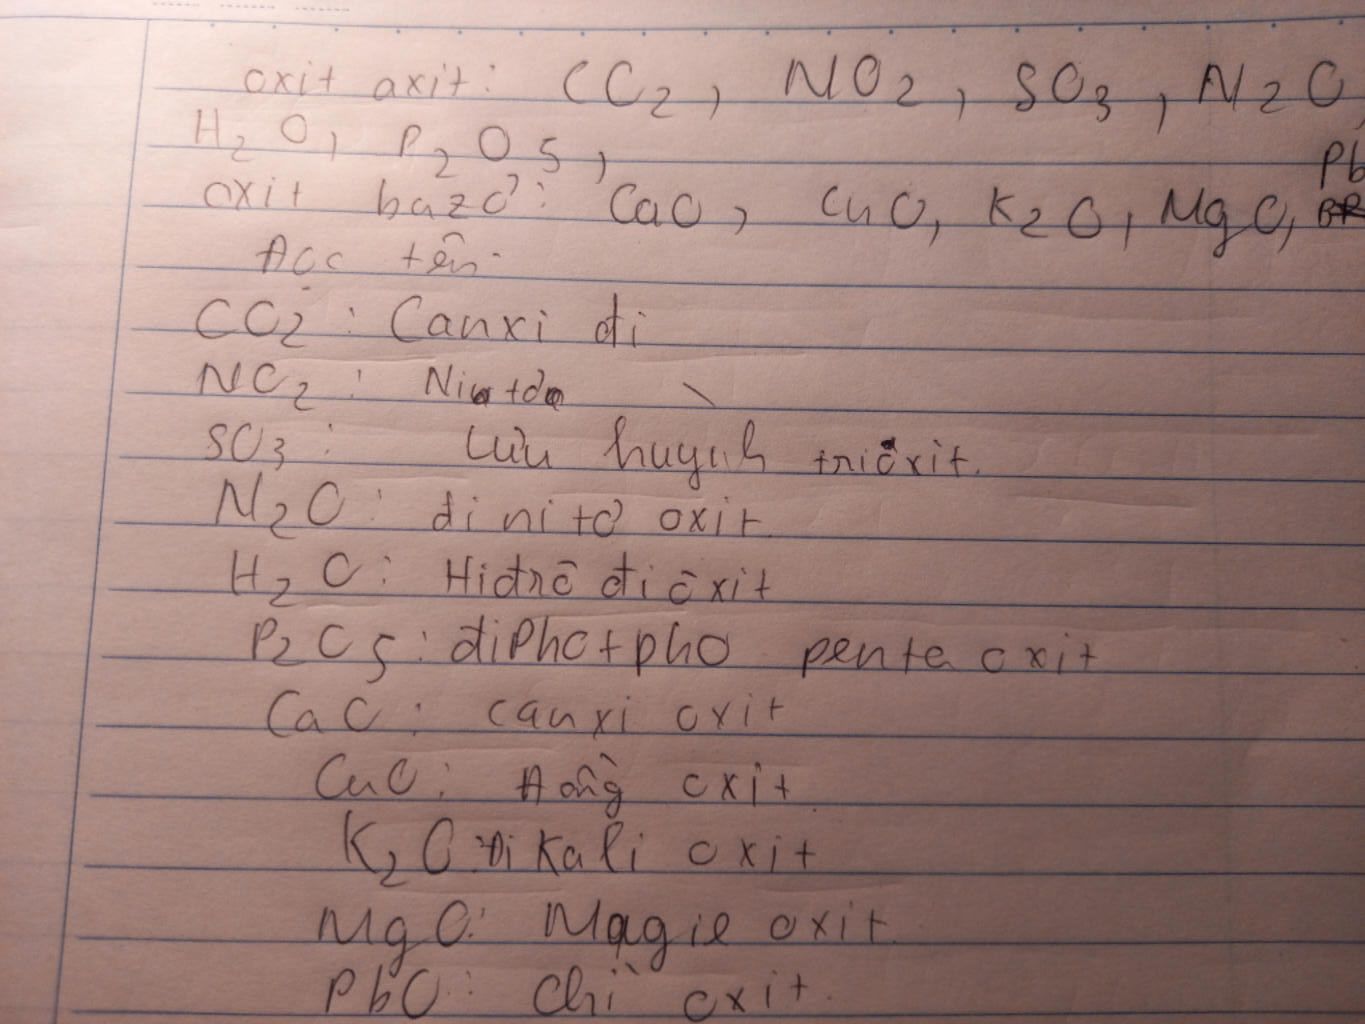 oxit axit: CO2, NO2, SO3, N2O,
H2O, P2O5,
Pb
oxit bazơ: CaO, CuO, K2O, MgO,
Đọc tên:
CO2: Canxi đi
NO2: Nitơ
SO3: Lưu huỳnh triôxit.
N2O: đi nitơ oxit
H2O: Hiđrô điôxit
P2O5: điphotpho penta oxit
CaO: canxi oxit
CuO: Đồng oxit
K2O: Đi Kali oxit
MgO: Magie oxit
PbO: Chì oxit.